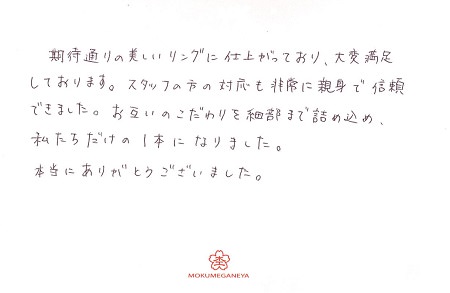 期待通りの美しいリングに仕上がっており、大変満足
しております。スタッフの方の対応も非常に親身で信頼
できました。お互いのこだわりを細部まで詰め込め、
私たちだけの1本になりました。
本当にありがとうございました。
MOKUMEGANEYA